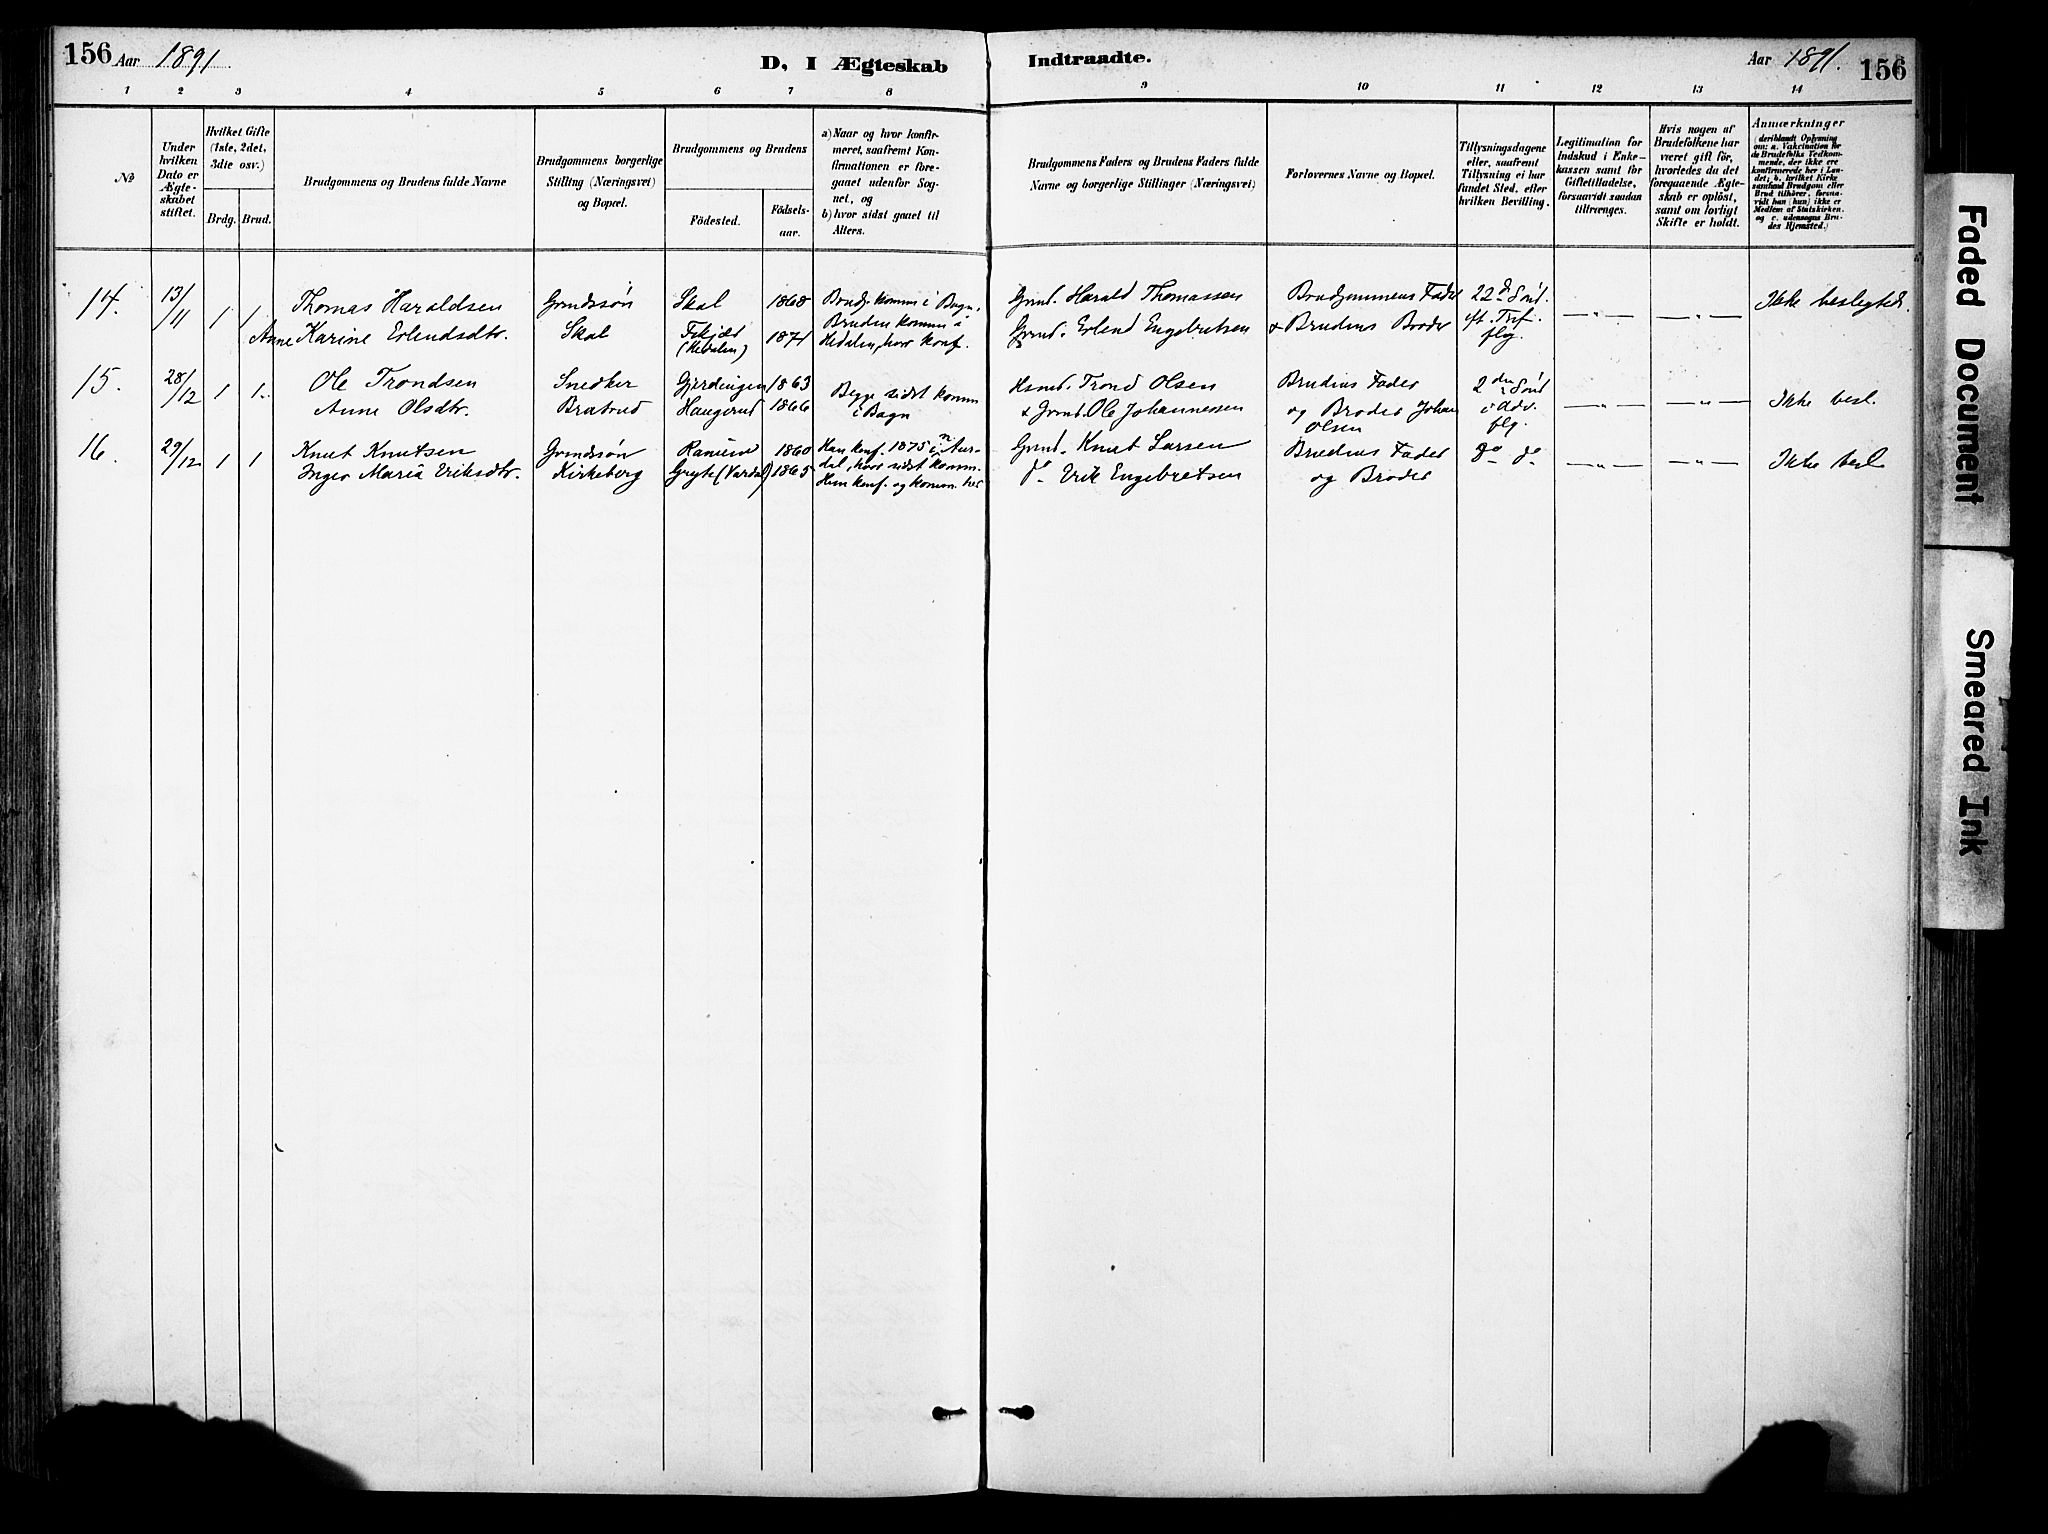 156 Aar 1891.
D, I Ægteskab Indtraadte.
Aar 1891. 156
1 2 3 4 5 6 7 8 9 10 11 12 13 14
№
Under hvilken Dato er Ægteskabet stiftet.
Hvilket Gifte (1ste, 2det, 3dte osv.)
Brdg. Brud.
Brudgommens og Brudens fulde Navne
Brudgommens borgerlige Stilling (Næringsvei) og Bopæl.
Brudgommens og Brudens
Födested. Födselsaar.
a) Naar og hvor konfirmeret, saafremt Konfirmationen er foregaaet udenfor Sognet, og
b) hvor sidst gaaet til Alters.
Brudgommens Faders og Brudens Faders fulde Navne og borgerlige Stillinger (Næringsvei)
Forlovernes Navne og Bopæl.
Tillysningsdagene eller, saafremt Tillysning ei har fundet Sted, efter hvilken Bevilling.
Legitimation for Indskud i Enkekassen samt for Giftetilladelse, forsaavidt saadan tiltrænges.
Hvis nogen af Brudefolkene har været gift før, hvorledes da det foregaaende Ægteskab er opløst, samt om lovligt Skifte er holdt.
Anmærkninger
(deriblandt Oplysning om: a. Vakcination for de Brudefolks Vedkommende, der ikke ere konfirmerede her i Landet; b. hvilket Kirkesamfund Brudgom eller Brud tilhører, forsaavidt han (hun) ikke er Medlem af Statskirken, og c. udensogns Brudes Hjemsted.)
14. 13/11 1 1 Thomas Haraldsen Grndssøn Skal 1868 Brudg. komm i Bagn. Grmd. Harald Thomassen Brudgommens Fader 22d Sönd. Ikke beslegtede
Anne Karine Erlendsdtr. Skal (Hedalen) 1871 Bruden komm i Hedalen, hvor konf. Grmd. Erlend Engebretsen & Brudens Broder eft. Tref. flg.
15. 28/12 1 1 Ole Trondsen Snedker Gjerdingen 1863 Begge sidst komm i Bagn Hsmd. Trond Olsen Brudens Fader 2den Sönd Ikke besl.
Anne Olsdtr. Bratrud Haugerud 1866 & Grmd. Ole Johannessen og Broder Johan Olsen i Adv. flg.
16. 29/12 1 1 Knut Knutsen Grndssøn Ranum 1860 Han konf. 1875 i n Aurdal, hvor sidst komm. Grmd. Knut Larsen Brudens Fader do do Ikke besl
Inger Maria Eriksdtr. Kirkeberg Gryte (Vardal) 1865 Hun konf. og komm. her do Erik Engebretsen og Broder
Faded Document
Smeared Ink